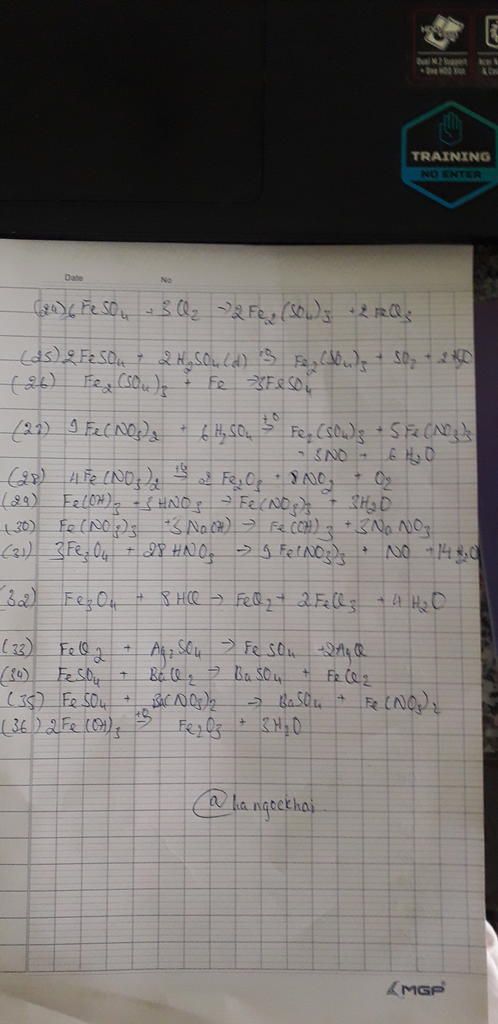 Dual M.2 Support
+ One HDD Slot
TRAINING
NO ENTER
Date No
(24) 6 FeSO4 + 3Cl2 → 2Fe2(SO4)3 + 2FeCl3
(25) 2FeSO4 + 2H2SO4(đ) t° → Fe2(SO4)3 + SO2 + 2H2O
(26) Fe2(SO4)3 + Fe → 3FeSO4
(27) 9Fe(NO3)2 + 6H2SO4 t° → Fe2(SO4)3 + 5Fe(NO3)3
+ 3NO + 6H2O
(28) 4Fe(NO3)2 t° → 2Fe2O3 + 8NO2 + O2
(29) Fe(OH)3 + 3HNO3 → Fe(NO3)3 + 3H2O
(30) Fe(NO3)3 + 3NaOH → Fe(OH)3 + 3NaNO3
(31) 3Fe3O4 + 28HNO3 → 9Fe(NO3)3 + NO + 14H2O
(32) Fe3O4 + 8HCl → FeCl2 + 2FeCl3 + 4H2O
(33) FeCl2 + Ag2SO4 → FeSO4 + 2AgCl
(34) FeSO4 + BaCl2 → BaSO4 + FeCl2
(35) FeSO4 + Ba(NO3)2 → BaSO4 + Fe(NO3)2
(36) 2Fe(OH)3 t° → Fe2O3 + 3H2O
@hangockhai
MGP